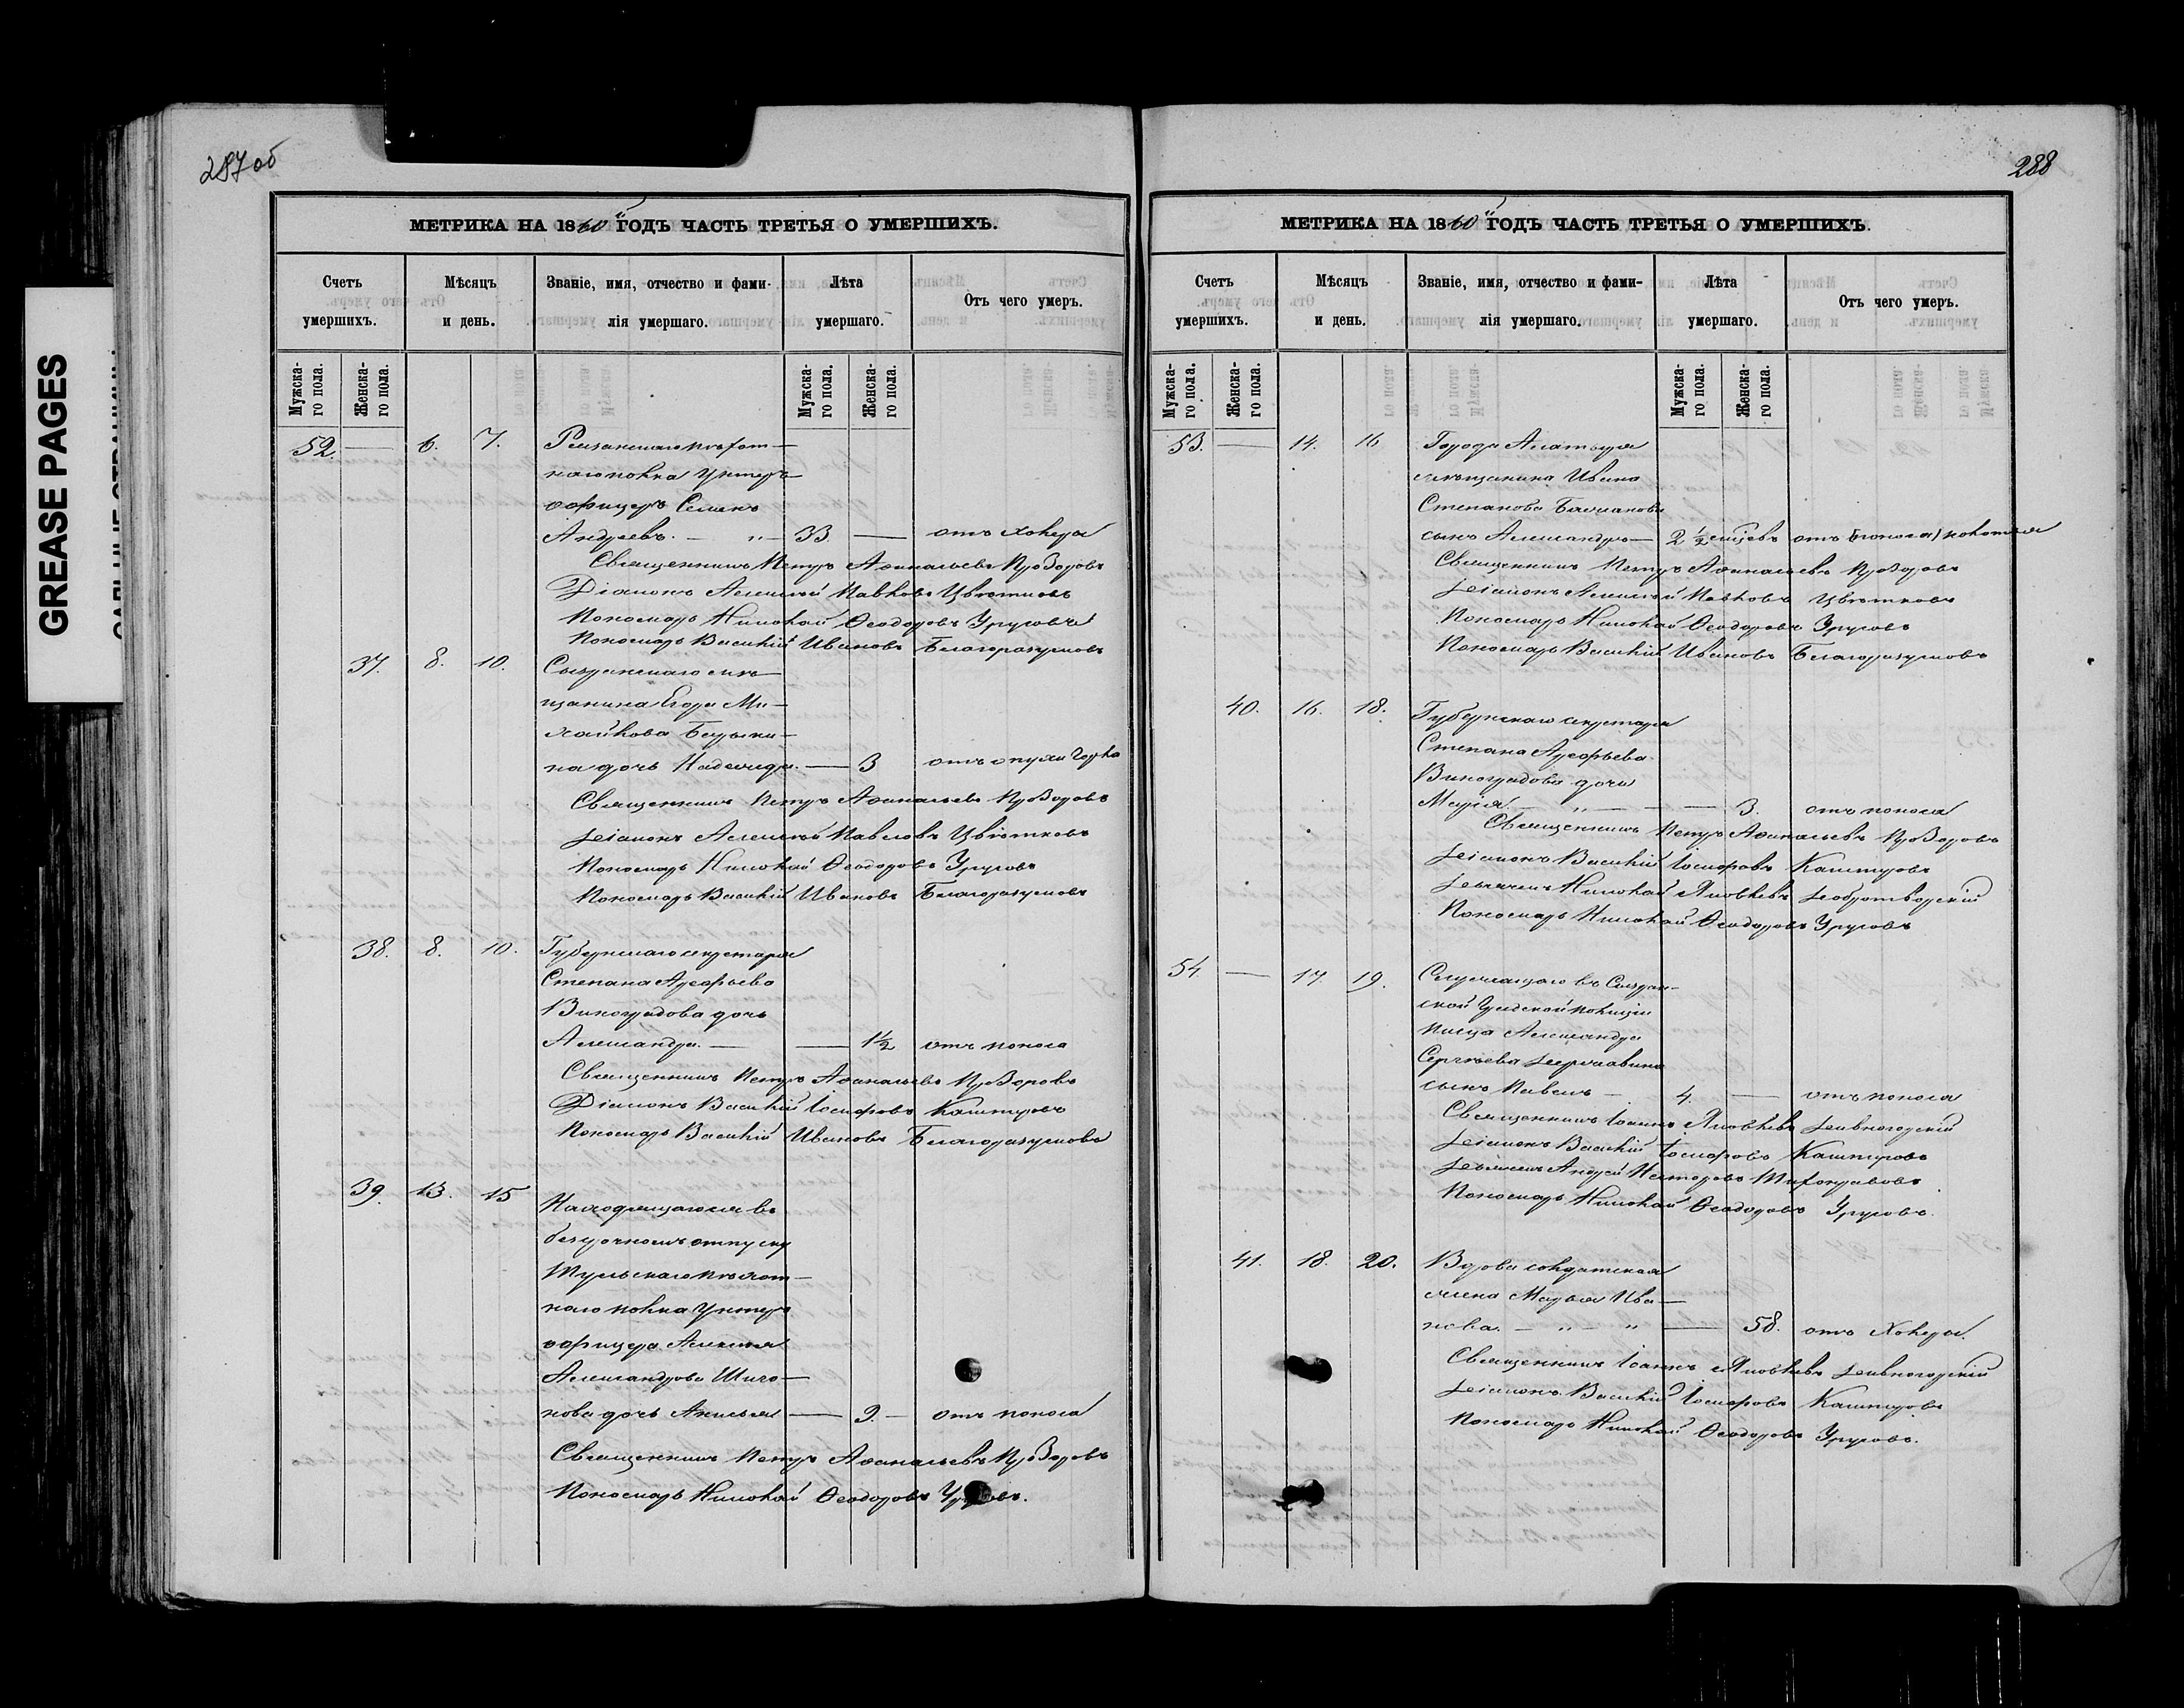 GREASE PAGES
287 об
МЕТРИКА НА 1860 ГОДЪ ЧАСТЬ ТРЕТЬЯ О УМЕРШИХЪ.
Счетъ умершихъ.
Мѣсяцъ и день.
Званіе, имя, отчество и фами-
лія умершаго.
Лѣта умершаго.
Отъ чего умеръ.
Мужска-
го пола.
Женска-
го пола.
Мужска-
го пола.
Женска-
го пола.
52. — 6. 7. Рязанскаго пѣхот-
наго полка Унтеръ
офицеръ Семенъ
Андреевъ. — 33. — отъ холеры
Священникъ Петръ Аѳанасьевъ Прозоровъ
Діаконъ Алексѣй Павловъ Цвѣтковъ
Пономарь Николай Ѳеодоровъ Урусовъ
Пономарь Василій Ивановъ Благоразумовъ
37. 8. 10. Сызранскаго мѣ-
щанина Егора Ми-
хайлова
на дочь Надежда. — 3 отъ опухи горла
Священникъ Петръ Аѳанасьевъ Прозоровъ
Діаконъ Алексѣй Павловъ Цвѣтковъ
Пономарь Николай Ѳеодоровъ Урусовъ
Пономарь Василій Ивановъ Благоразумовъ
38. 8. 10. Губернскаго секретаря
Степана Арефьева
Виноградова дочь
Александра. — — 1½ отъ поноса
Священникъ Петръ Аѳанасьевъ Прозоровъ
Діаконъ Василій Іосифовъ Каштуровъ
Пономарь Василій Ивановъ Благоразумовъ
39. 13. 15 Находящагося въ
безсрочномъ отпуску
Тульскаго пѣхот-
наго полка Унтеръ
офицера Алексѣя
Александрова
нова дочь — 9. — отъ поноса
Священникъ Петръ Аѳанасьевъ Прозоровъ
Пономарь Николай Ѳеодоровъ Урусовъ.
288
МЕТРИКА НА 1860 ГОДЪ ЧАСТЬ ТРЕТЬЯ О УМЕРШИХЪ.
Счетъ умершихъ.
Мѣсяцъ и день.
Званіе, имя, отчество и фами-
лія умершаго.
Лѣта умершаго.
Отъ чего умеръ.
Мужска-
го пола.
Женска-
го пола.
Мужска-
го пола.
Женска-
го пола.
53. — 14. 16 Города Алатыря
мѣщанина Ивана
Степанова
сынъ Александръ — 2½ отъ
Священникъ Петръ Аѳанасьевъ Прозоровъ
Діаконъ Алексѣй Павловъ Цвѣтковъ
Пономарь Николай Ѳеодоровъ Урусовъ
Пономарь Василій Ивановъ Благоразумовъ
40. 16. 18. Губернскаго секретаря
Степана Арефьева
Виноградова дочь
Марія. — „ — — 3. отъ поноса
Священникъ Петръ Аѳанасьевъ Прозоровъ
Діаконъ Василій Іосифовъ Каштуровъ
Дьячекъ Николай Яковлевъ Добротворскій
Пономарь Николай Ѳеодоровъ Урусовъ
54 — 17. 19. Служащаго въ Сызран-
ской Градской полиціи
писца Александра
Сергѣева Державина
сынъ Павелъ — 4. — отъ поноса
Священникъ Іоаннъ Яковлевъ Дивногорскій
Діаконъ Василій Іосифовъ Каштуровъ
Дьячекъ Андрей Нестеровъ
Пономарь Николай Ѳеодоровъ Урусовъ.
41. 18. 20. Вдова солдатская
жена Марья Ива-
нова. — „ — „ — 58. отъ холеры.
Священникъ Іоаннъ Яковлевъ Дивногорскій
Діаконъ Василій Іосифовъ Каштуровъ
Пономарь Николай Ѳеодоровъ Урусовъ.